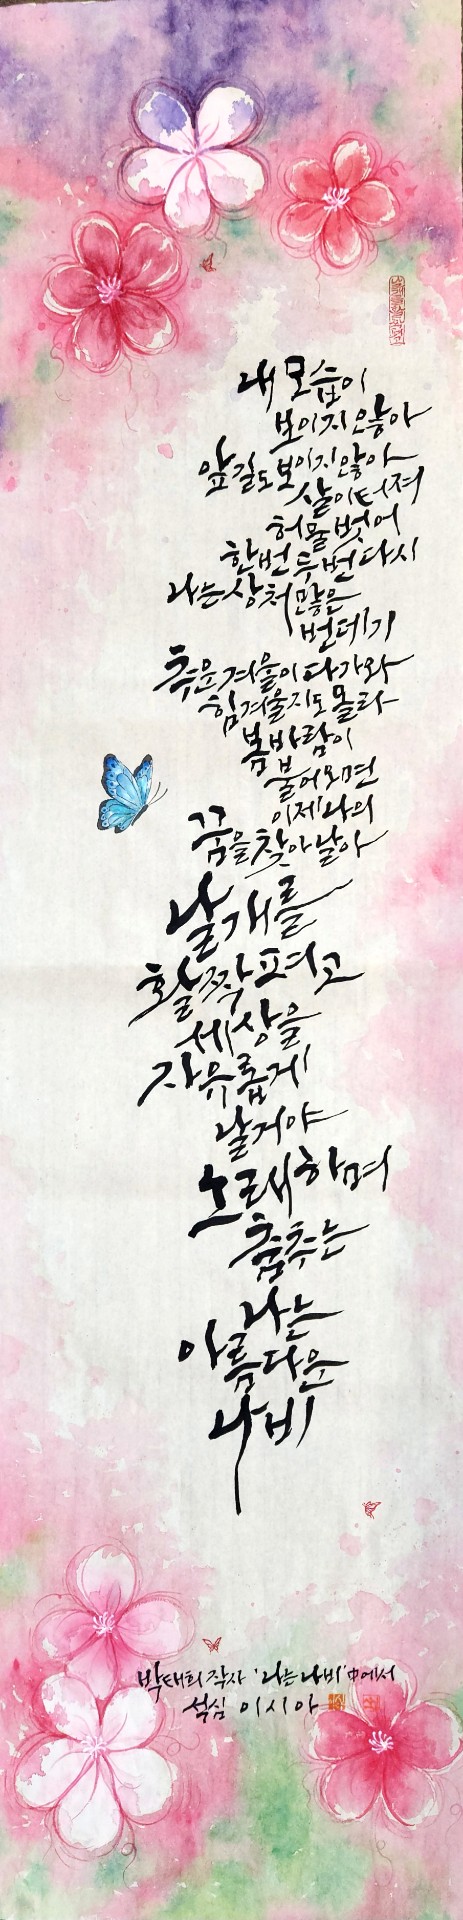 내 모습이
보이지 않아
앞길도 보이지 않아
살이 터져
허물 벗어
한번 두번 다시
나는 상처 많은
번데기
추운 겨울이 다가와
힘겨울지도 몰라
봄바람이
불어오면
이제 나의
꿈을 찾아 날아
날개를
활짝 펴고
세상을
자유롭게
날거야
노래하며
춤추는
나는
아름다운
나비
박태희 작사 '나는 나비' 中에서
석심 이시아